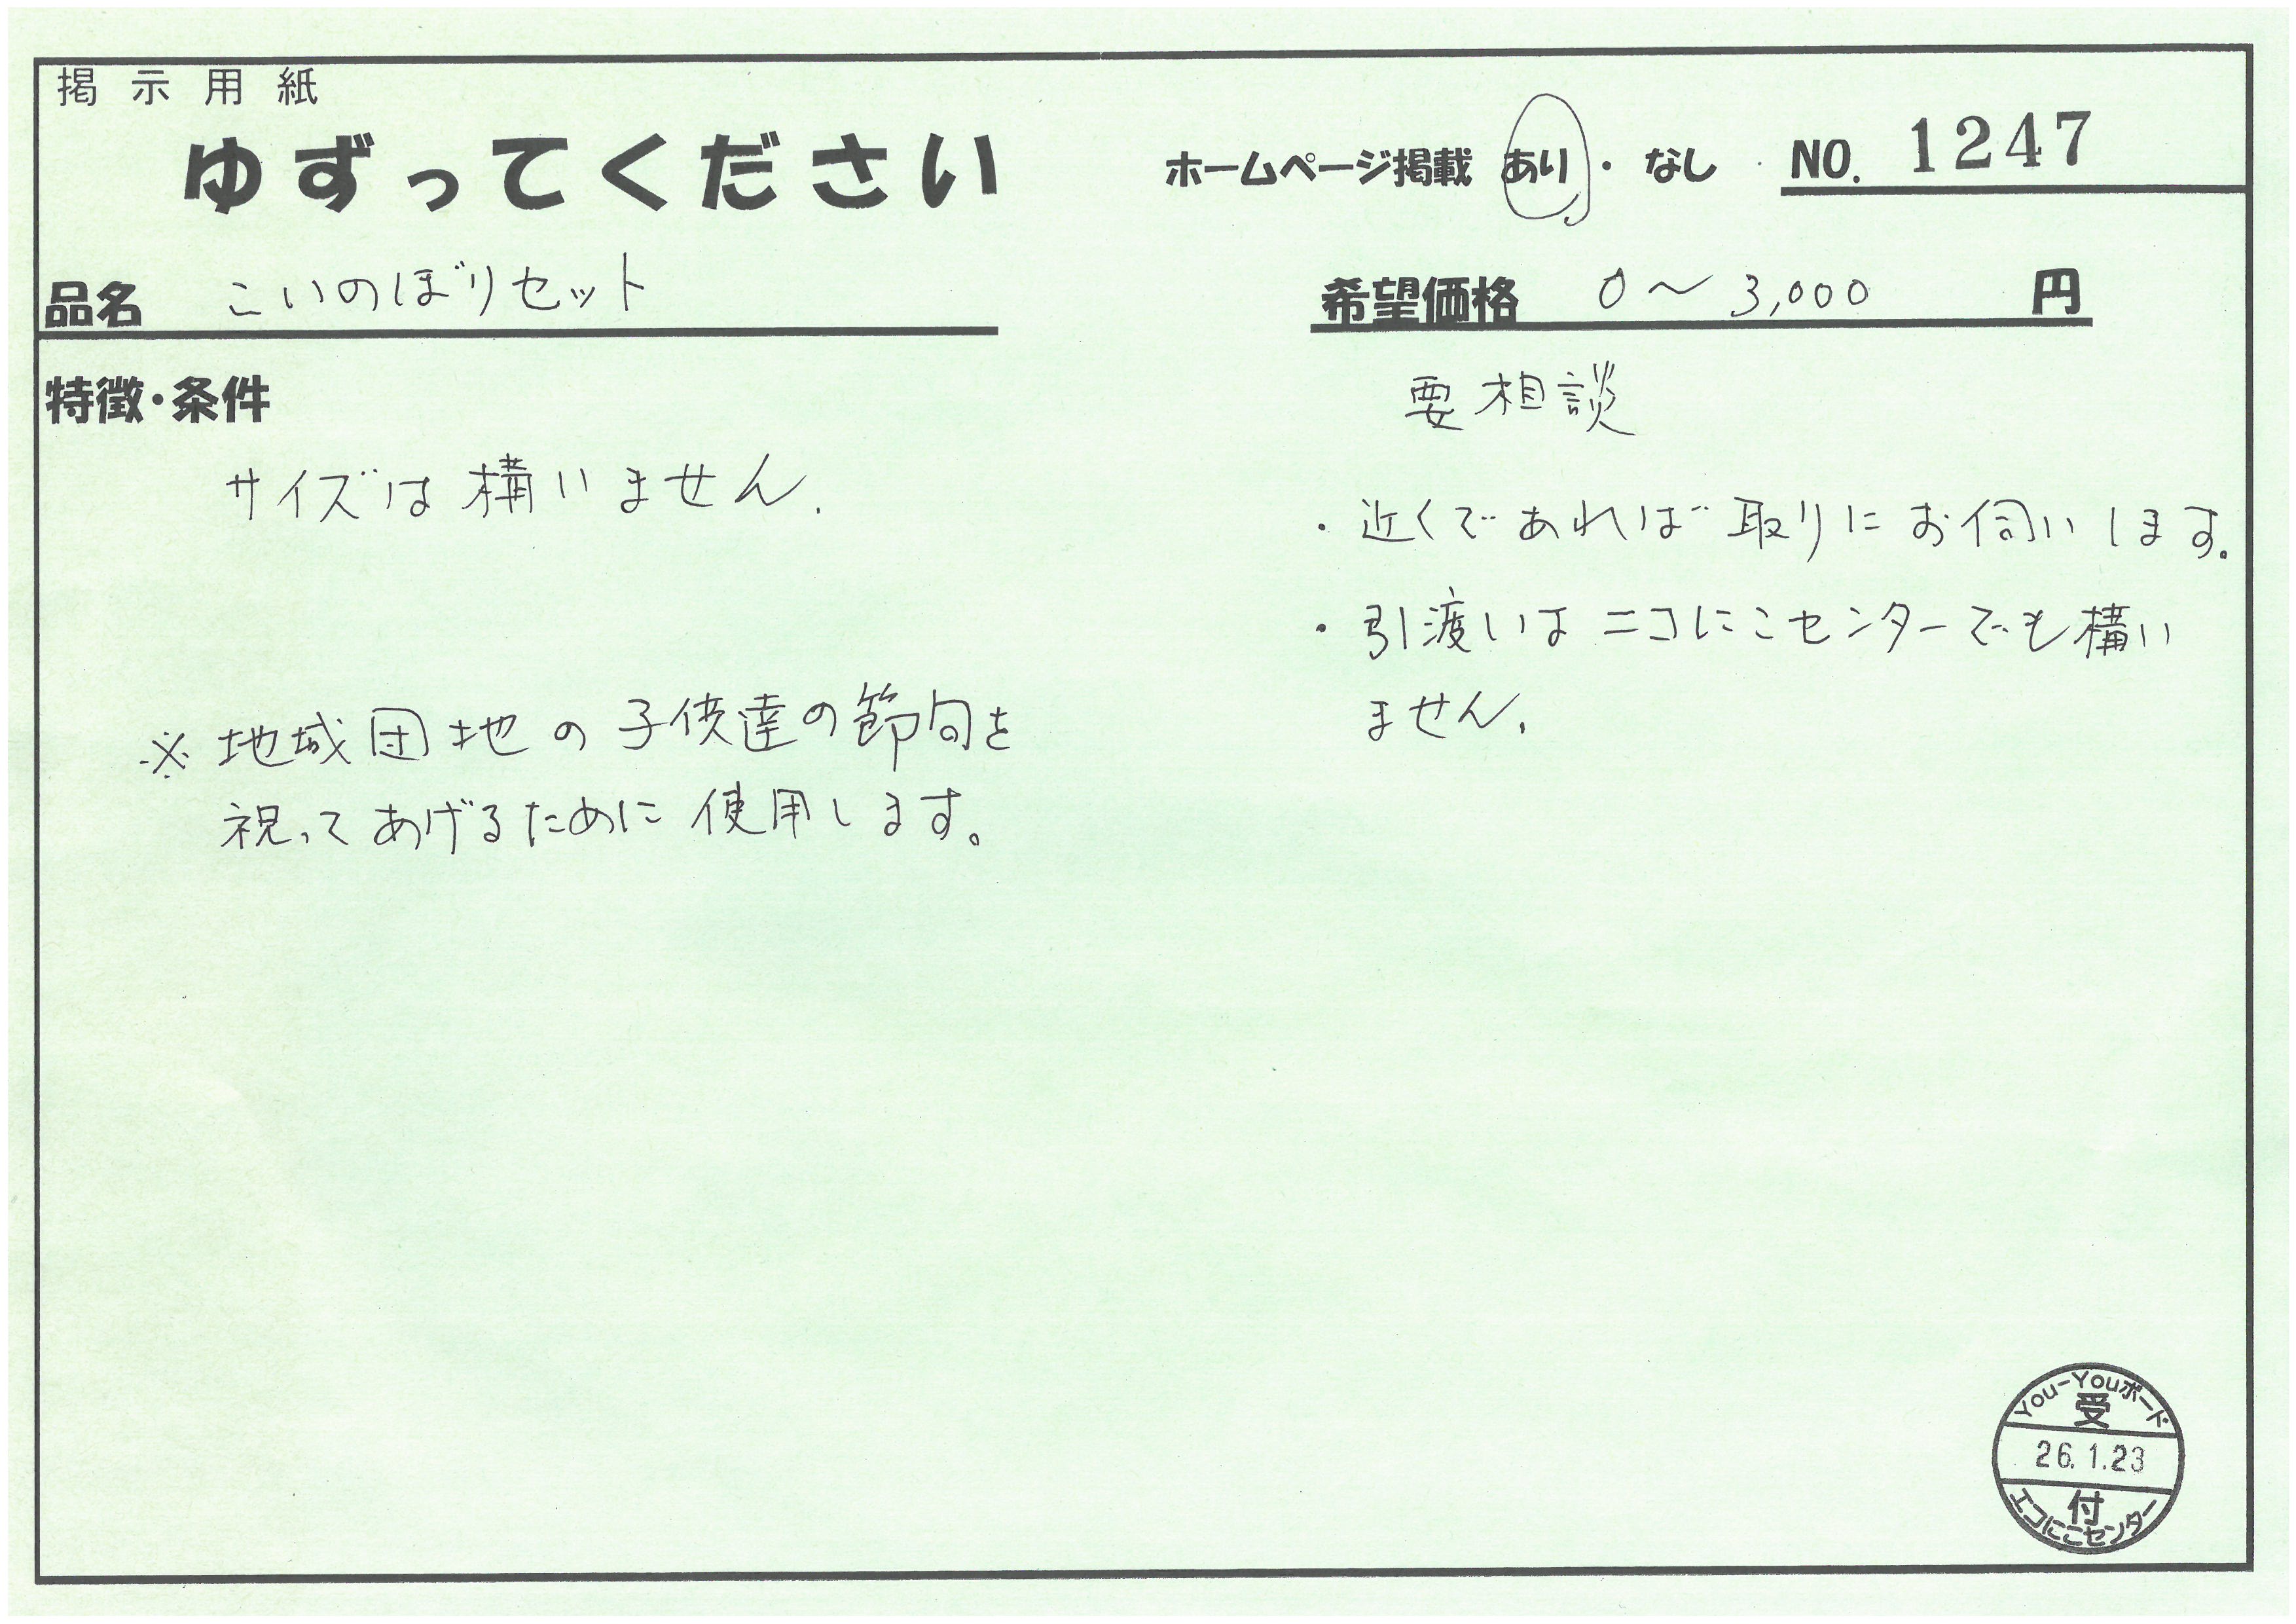 掲示用紙
ゆずってください
ホームページ掲載 あり ・ なし NO. 1247
品名 こいのぼりセット
希望価格 0～3,000 円
特徴・条件
サイズは構いません.
※地域団地の子供達の節句を
祝ってあげるために使用します。
要相談
・近くであれば取りにお伺いします。
・引渡しはニコにこセンターでも構い
ません.
You-Youボード
受
26.1.23
付
エコにこセンター